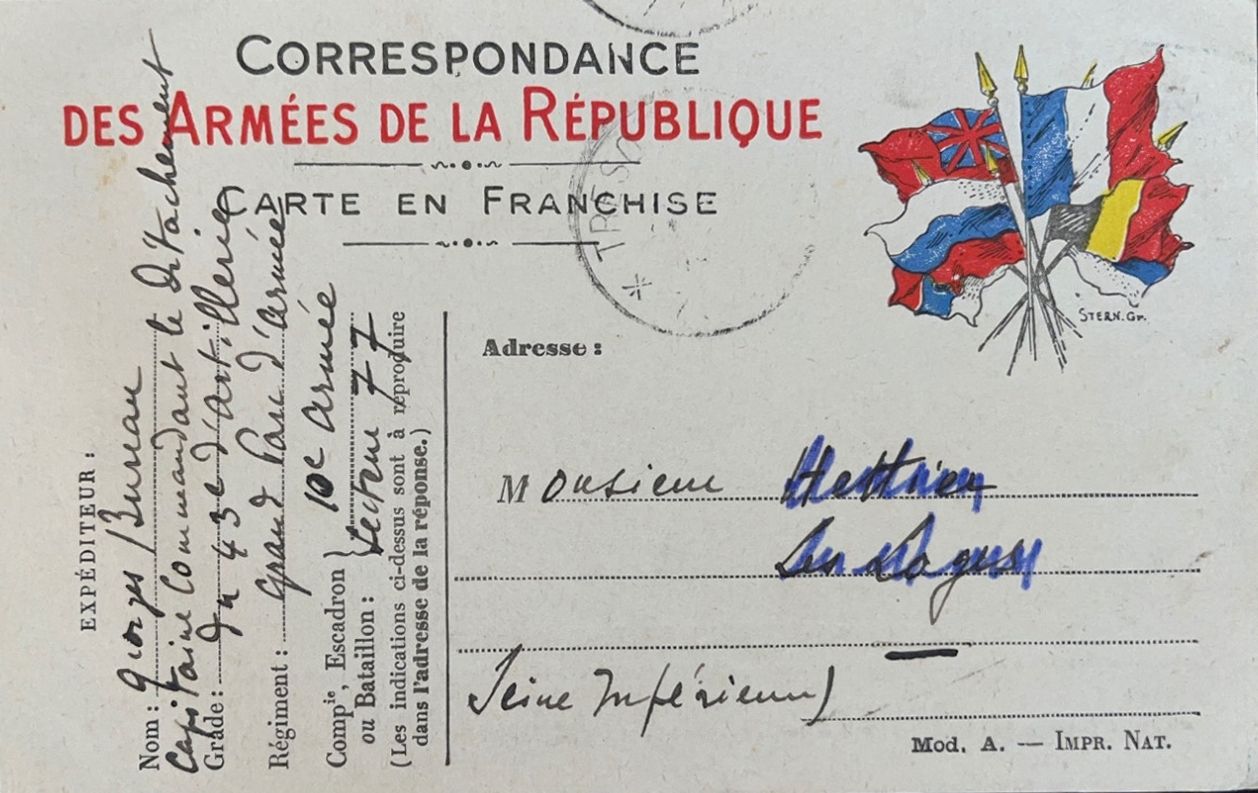 CORRESPONDANCE
DES ARMÉES DE LA RÉPUBLIQUE
CARTE EN FRANCHISE
TRÉSOR
*
STERN. Gr.
EXPÉDITEUR :
Nom : Georges Bureau
Capitaine Commandant le Détachement
Grade : du 43e d'Artillerie
Régiment : Grand Parc d'Armée
10e Armée
Compie, Escadron }
ou Bataillon : Secteur 77
(Les indications ci-dessus sont à reproduire
dans l'adresse de la réponse.)
Adresse :
Monsieur
Les Loges
Seine Inférieure
Mod. A. — IMPR. NAT.